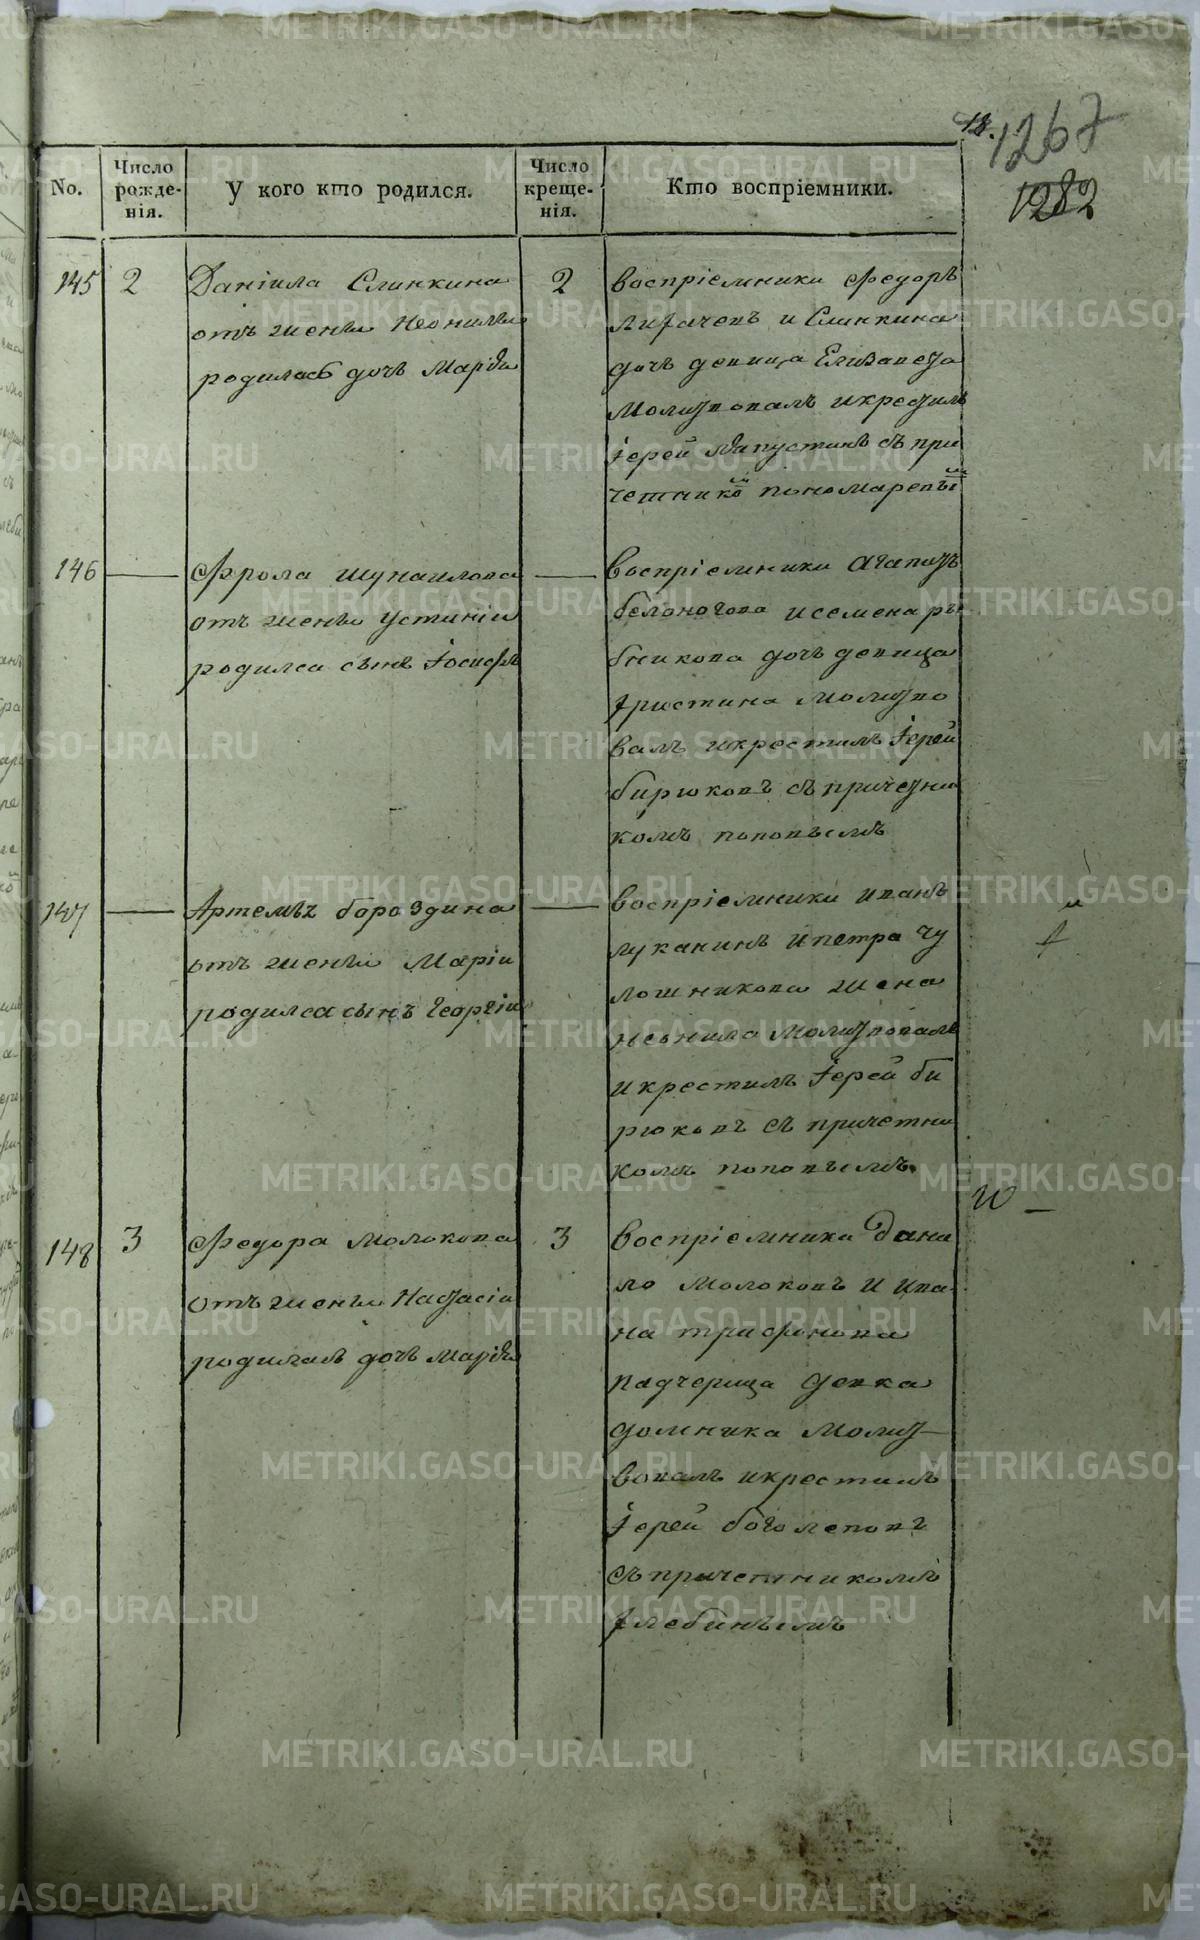 18.
1267
1282
No.
Число рожде-нія.
У кого кто родился.
Число креще-нія.
Кто воспріемники.
145
2
Даніила Слинкина
отъ жены Неонилы
родилась дочь Марія
2
воспріемники Федоръ
Лихачевъ и Слинкина
дочь девица Елизавета
молитвовалъ и крестилъ
Іерей Лапустинъ съ при
четнико пономаревы
146
Фрола Шумилова
отъ жены Устиніи
родился сынъ Іосифъ
воспріемники Агапитъ
белоногова и семена ры
бникова дочь девица
христина молитво
валъ и крестилъ Іерей
бирюковъ съ причетни
комъ поповымъ
147
Артемъ бороздина
отъ жены Маріи
родился сынъ Георгіи
воспріемники иванъ
луканинъ и петра чу
лошникова жена
неонила молитвовалъ
и крестилъ Іерей би
рюковъ съ причетни
комъ поповымъ
148
3
Федора молокова
отъ жены Настасіи
родилась дочь Марія
3
воспріемники Дани
ло молоковъ и ива
на трифонова
падчерица девка
домника молит
вовалъ и крестилъ
Іерей боголеповъ
съ причетникомъ
хлебинымъ
METRIKI.GASO-URAL.RU